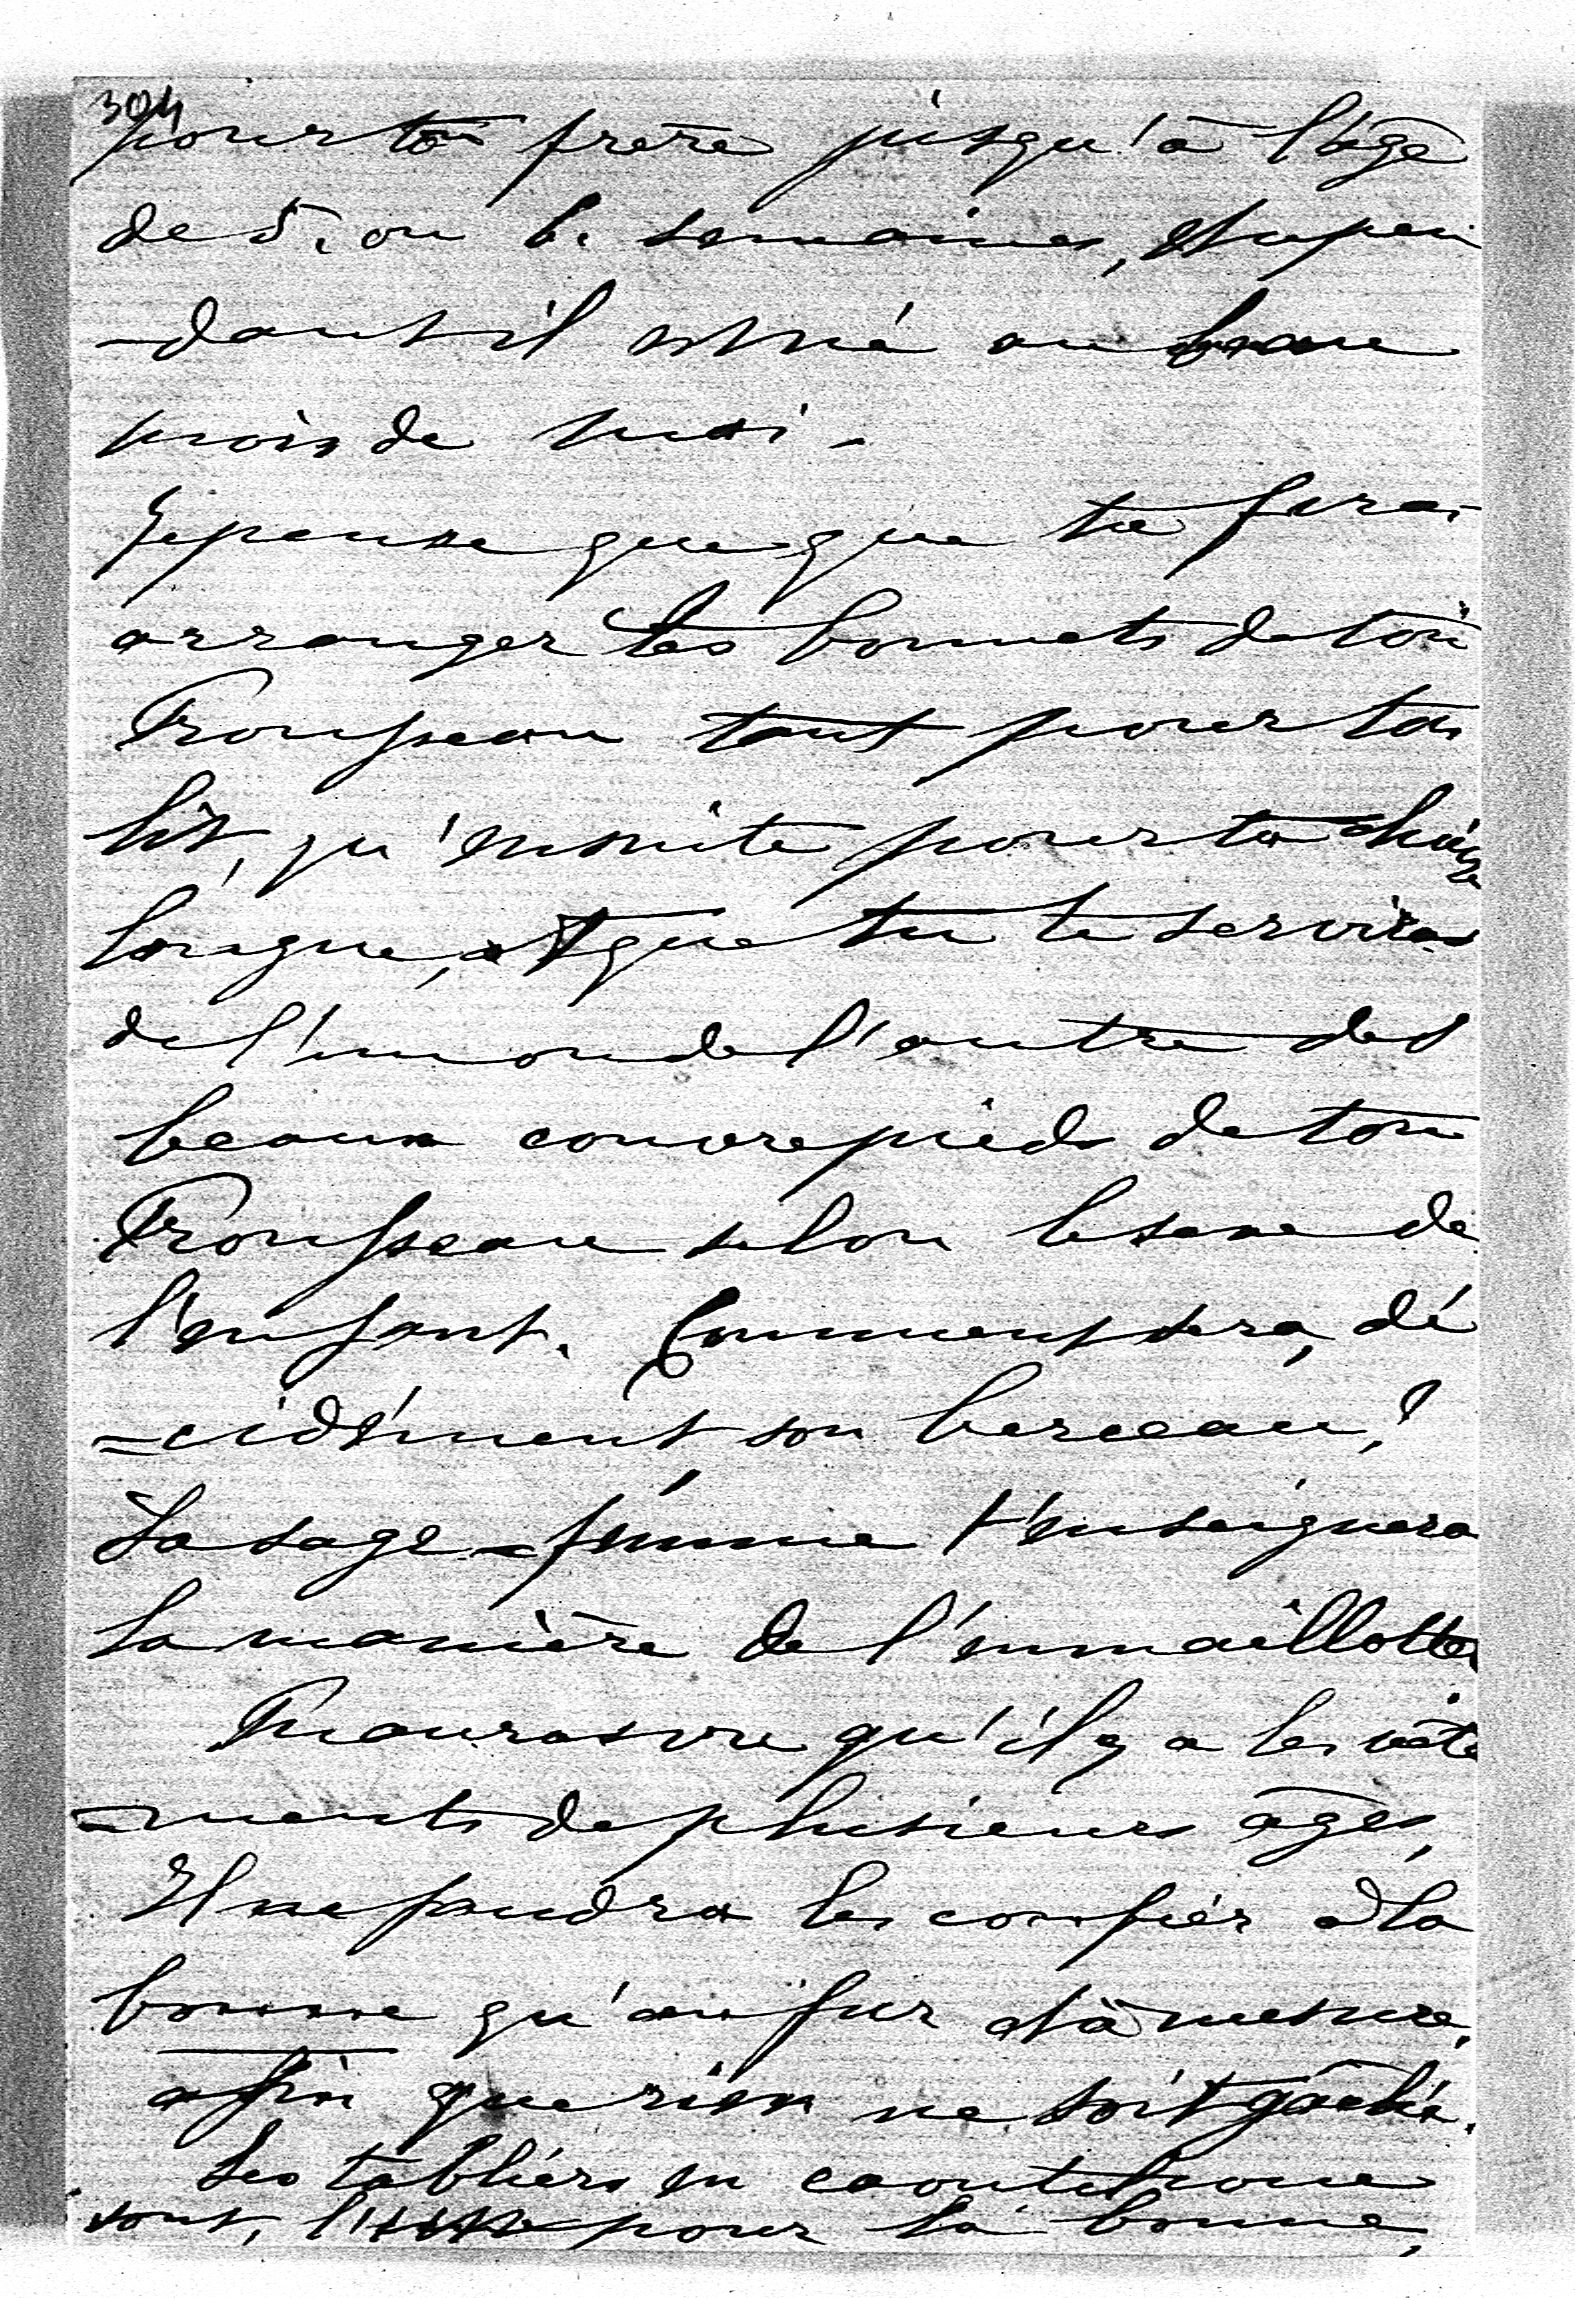 304
pour ton frère jusqu'à l'âge
de 5. ou 6. semaines, et cepen
-dant il est né au beau
mois de mai -
Je pense que que tu feras
arranger les bonnets de ton
Trousseau tant pour ton
lit, qu'ensuite pour ta chaise
longue, et que tu te serviras
de l'un ou de l'autre des
beaux couvrepieds de ton
Trousseau selon le sexe de
l'enfant. Comment sera, dé
=cidément son berceau?
La sage-femme t'enseignera
la manière de l'emmaillotter
qu'il y a les vête
=ments de plusieurs âges,
Il ne faudra les confier à la
bonne qu'au fur et à mesure,
afin que rien ne soit gâché.
Les tabliers en caoutchouc
sont, l'un pour la bonne,